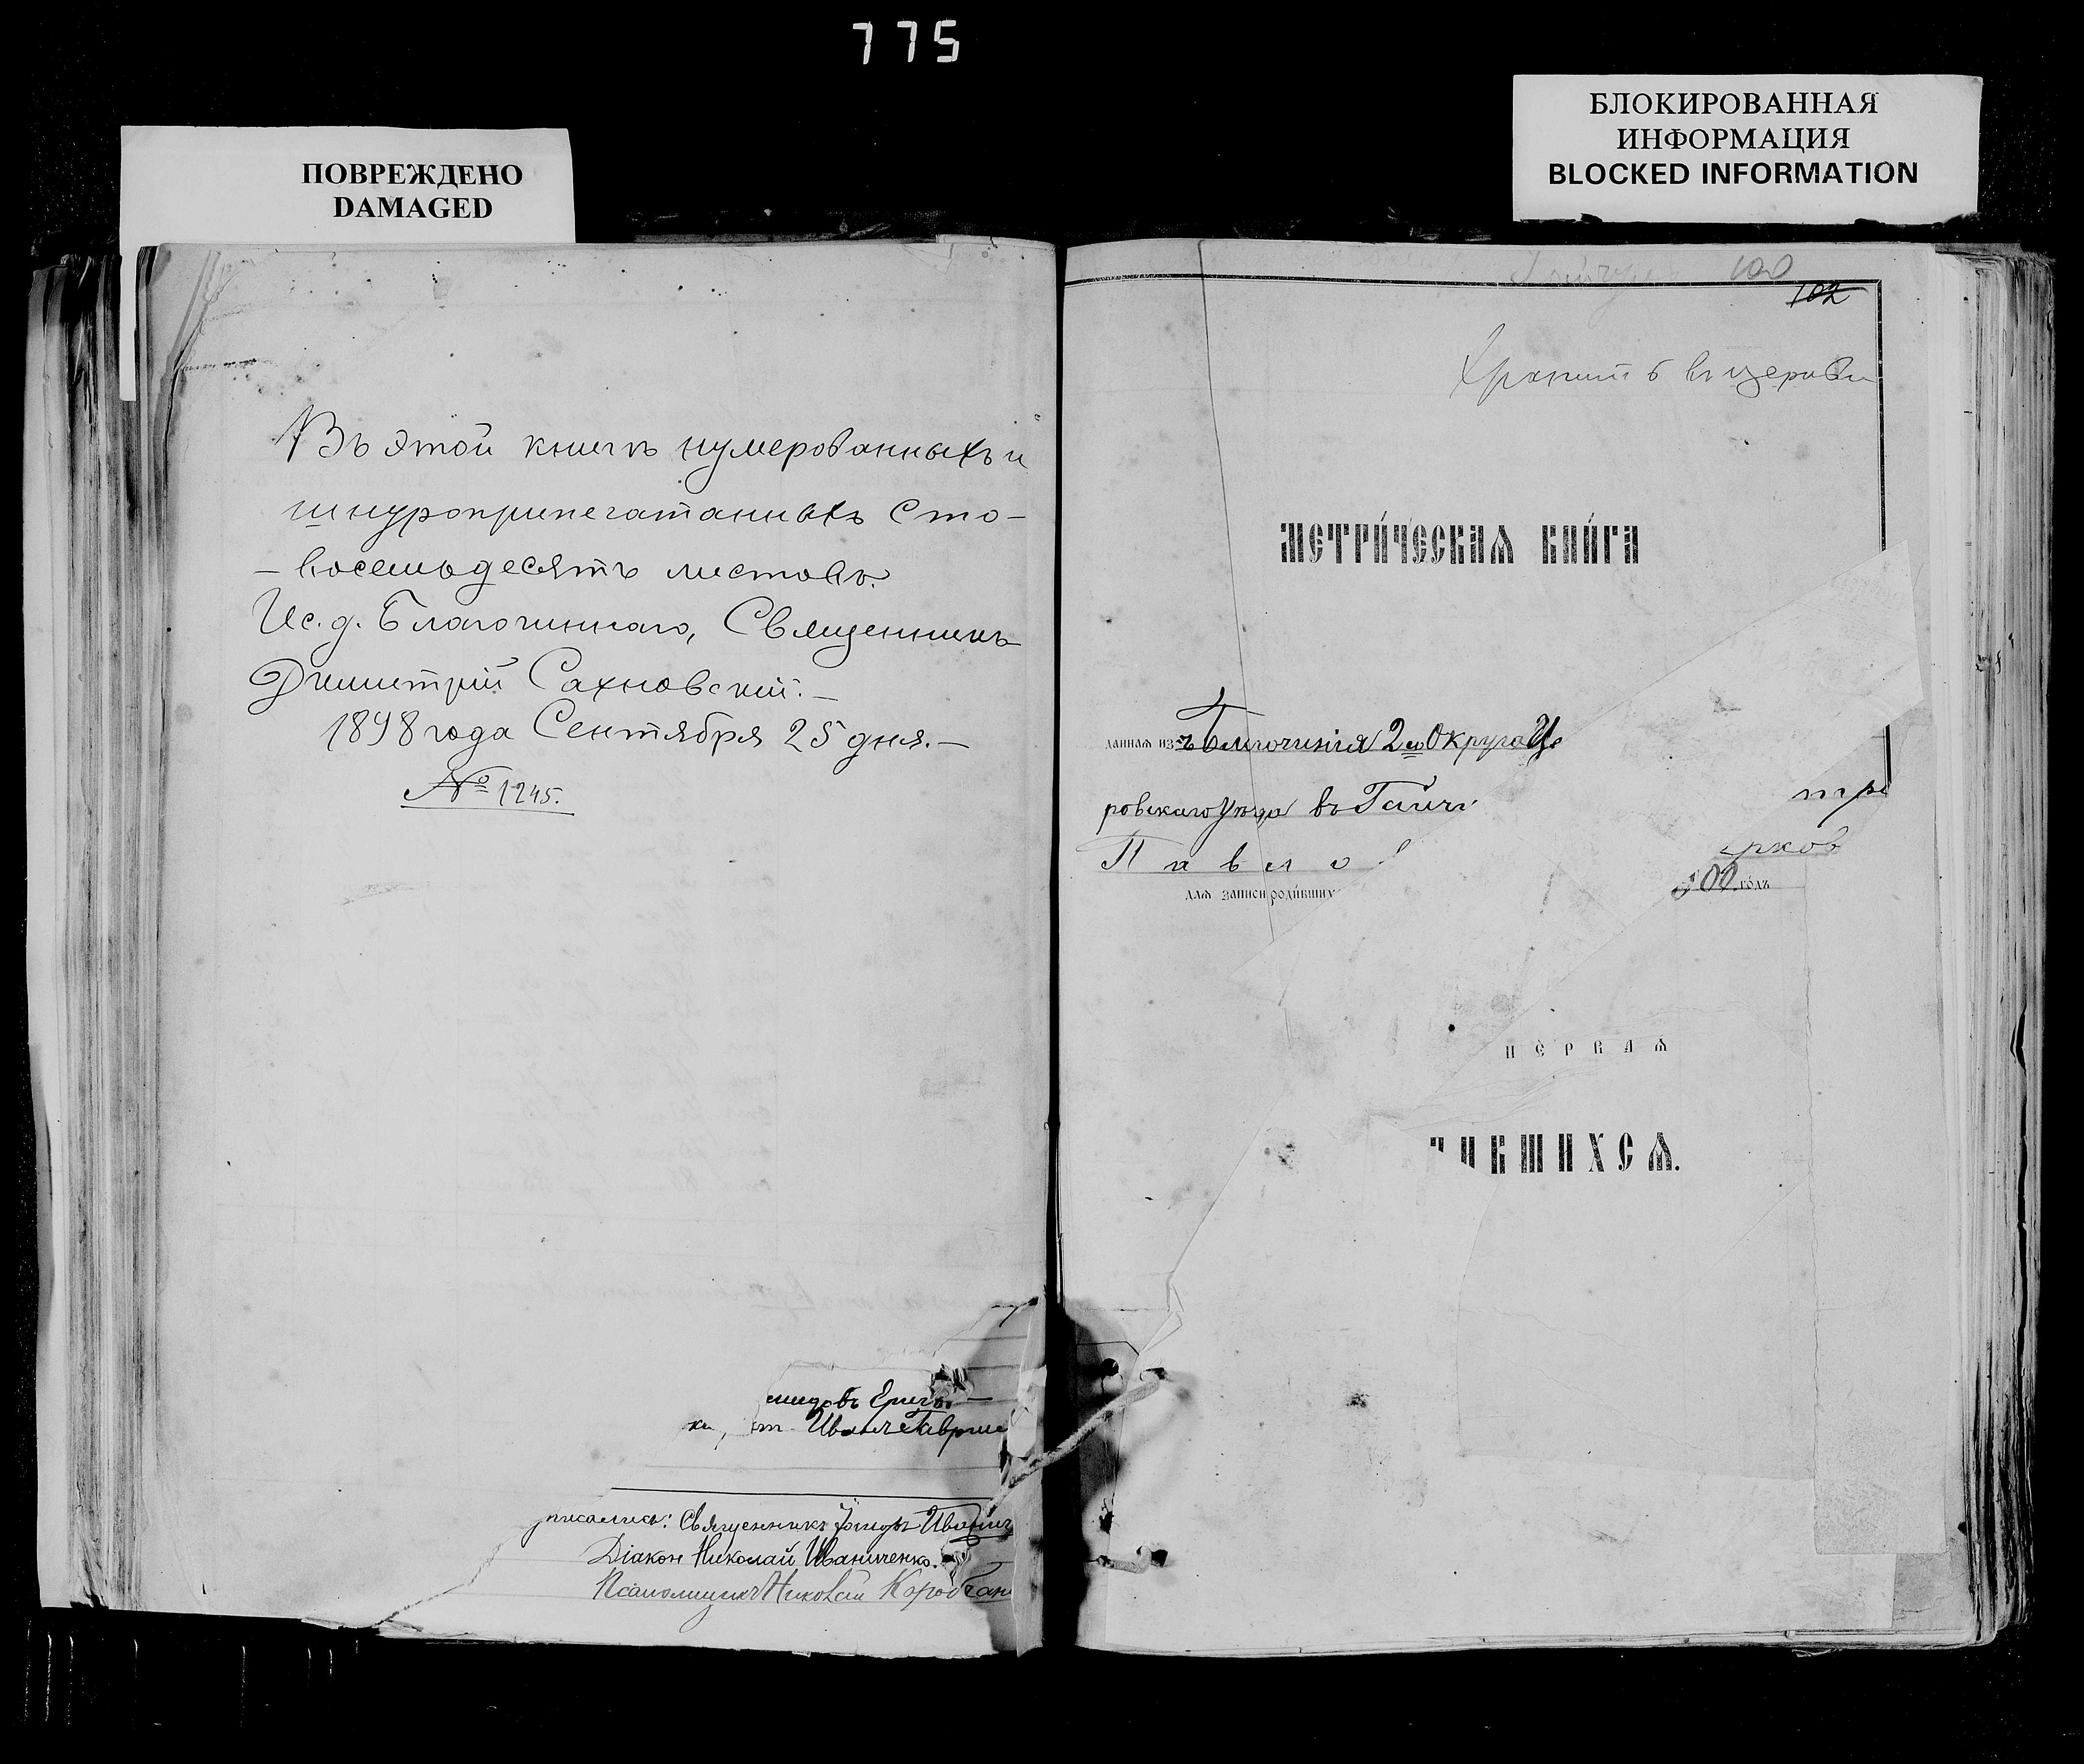 775
ПОВРЕЖДЕНО
DAMAGED
БЛОКИРОВАННАЯ
ИНФОРМАЦИЯ
BLOCKED INFORMATION
Въ этой книгѣ нумерованныхъ и
шнуроприпечатанныхъ сто-
-восемьдесятъ листовъ.
Ис. д. Благочиннаго, Священникъ
Димитрій Сахновскій.-
1898 года Сентября 25 дня.-
№ 1245.
ки, Иванъ Гаврше
писались: Священникъ Іоаннъ Иванич
Діаконъ Николай Иваниченко.
Псаломщикъ Николай
100
102
Хранить въ церкви
МЕТРИ́ЧЕСКАѦ КНИ́ГА
даннаѧ изъ Благочинія 2го Округа
ровскаго уѣзда въ Гайч
Павло
тре
рков
длѧ записи роди́вших
900 го́дъ
ПЕ́РВАѦ
ИВШИХСѦ.